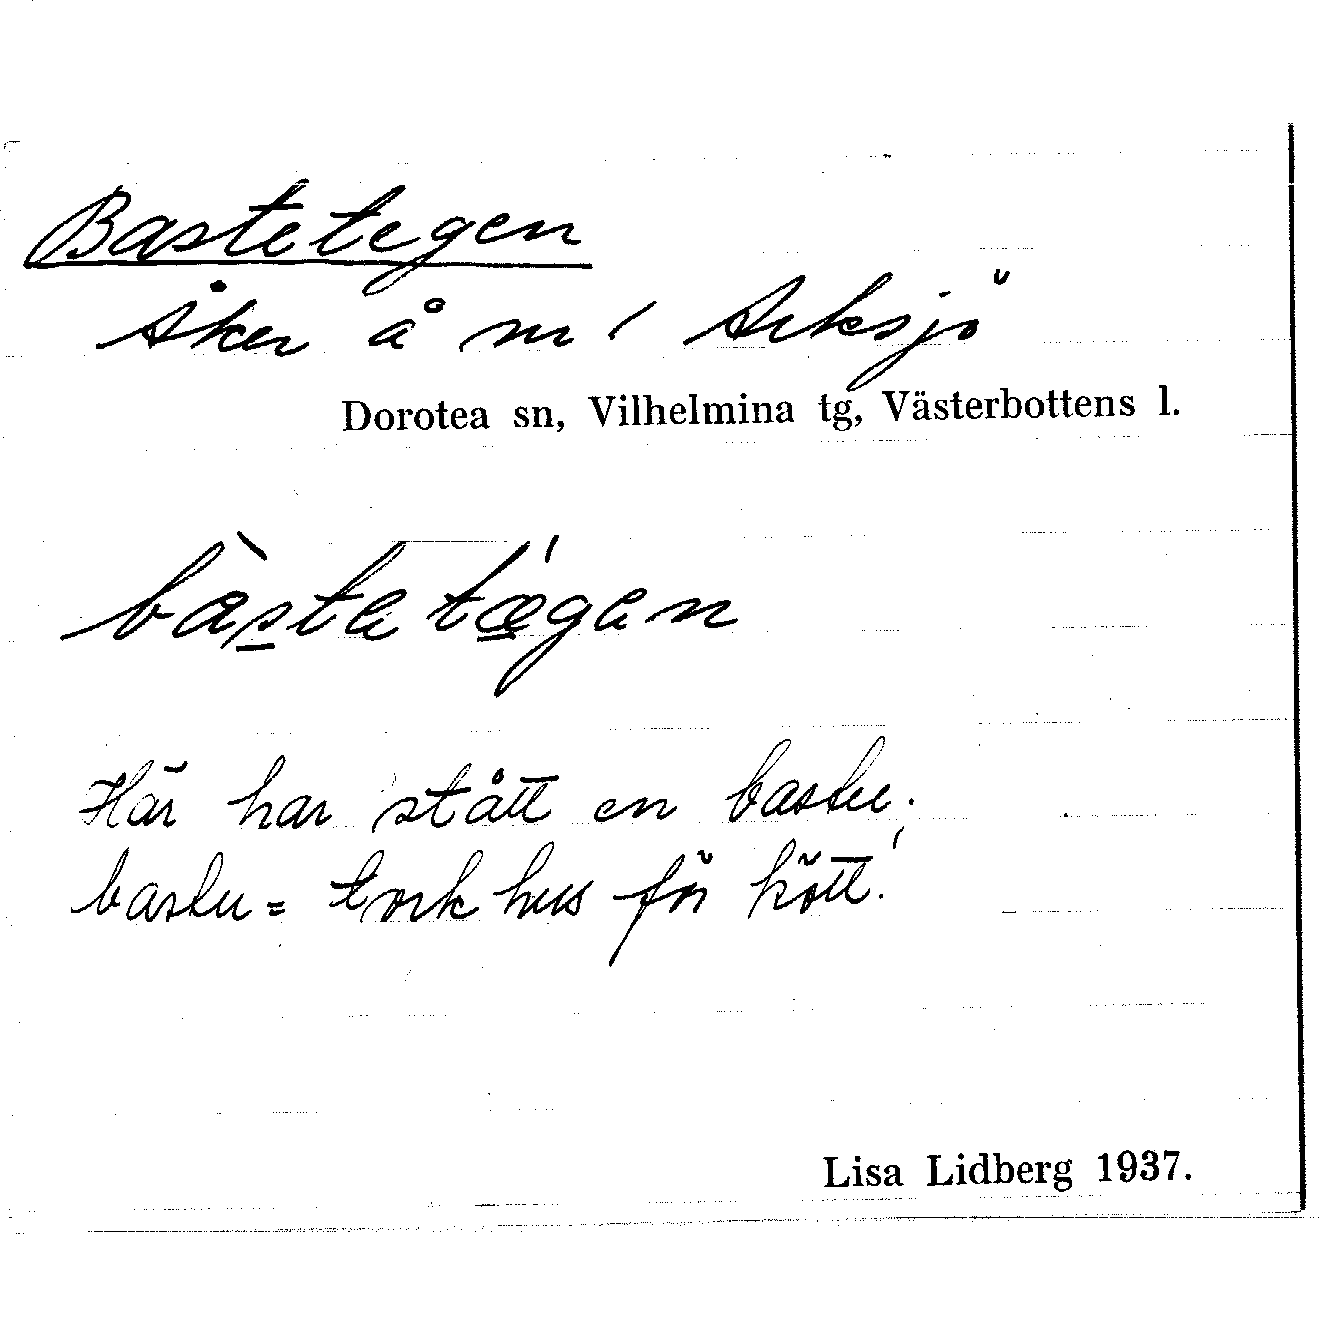 Bastetegen
Åker å nr 1 Arksjö
Dorotea sn, Vilhelmina tg, Västerbottens l.
bàstetǽgen
Här har stått en bastu.
bastu = torkhus för kött!
Lisa Lidberg 1937.